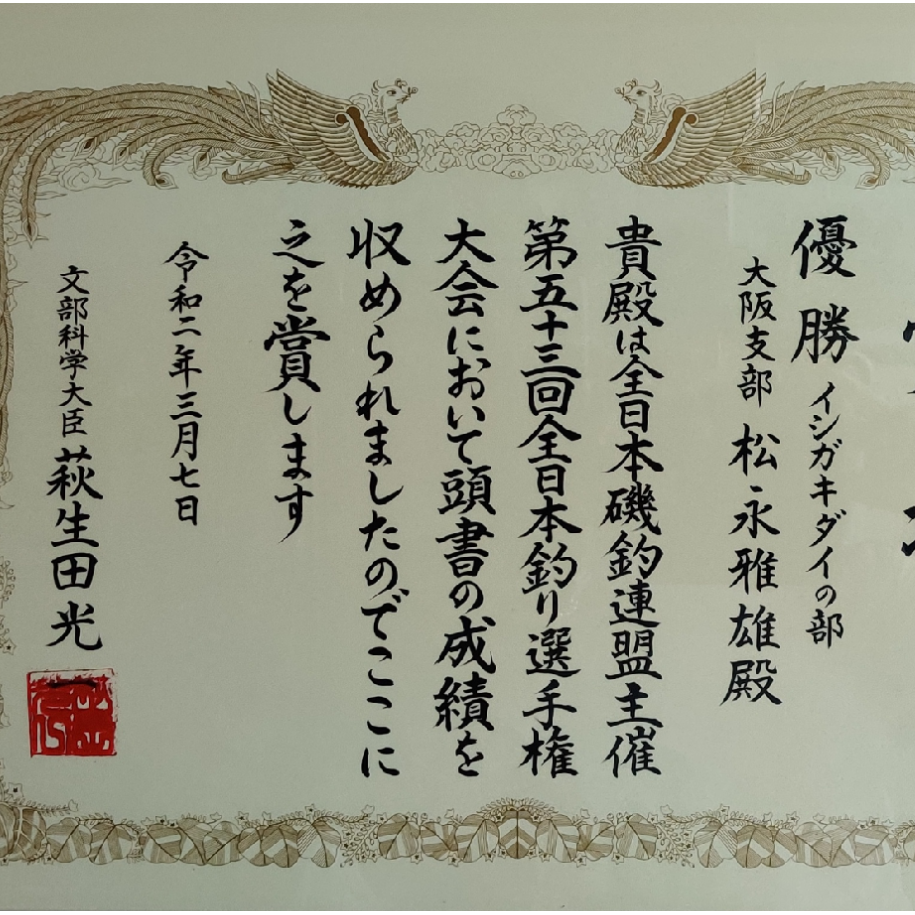 優勝 イシガキダイの部
大阪支部 松永雅雄殿
貴殿は全日本磯釣連盟主催
第五十三回全日本釣り選手権
大会において頭書の成績を
収められましたのでここに
之を賞します
令和二年三月七日
文部科学大臣 萩生田光一